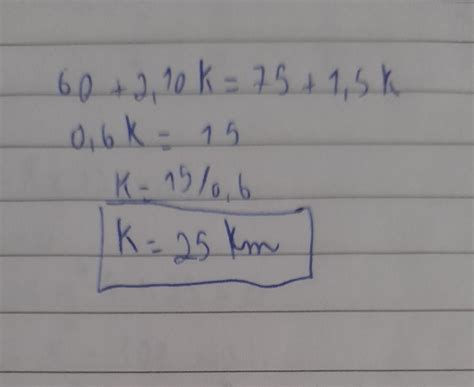 60 + 2,10 K = 75 + 1,5 K
0,6 K = 15
K = 15/0,6
K = 25 Km